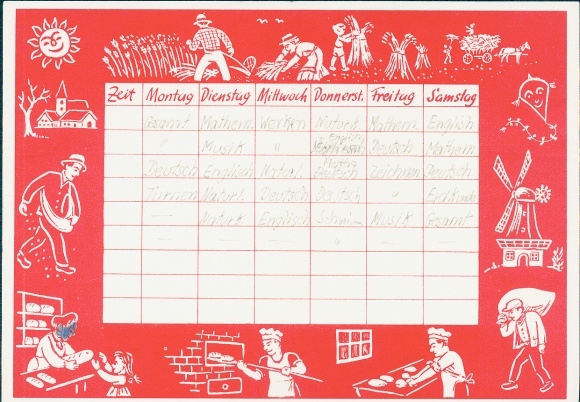 Zeit Montag Dienstag Mittwoch Donnerst. Freitag Samstag
Gesamt Mathem. Werken Naturk Mathem. Englisch
" Musik " Englisch Deutsch Mathem
Deutsch Englisch Naturl. Deutsch Zeichnen Deutsch
Turnen Naturl. Deutsch Deutsch " Erdkunde
— Naturk Englisch Musik Gesamt
— — — " — —